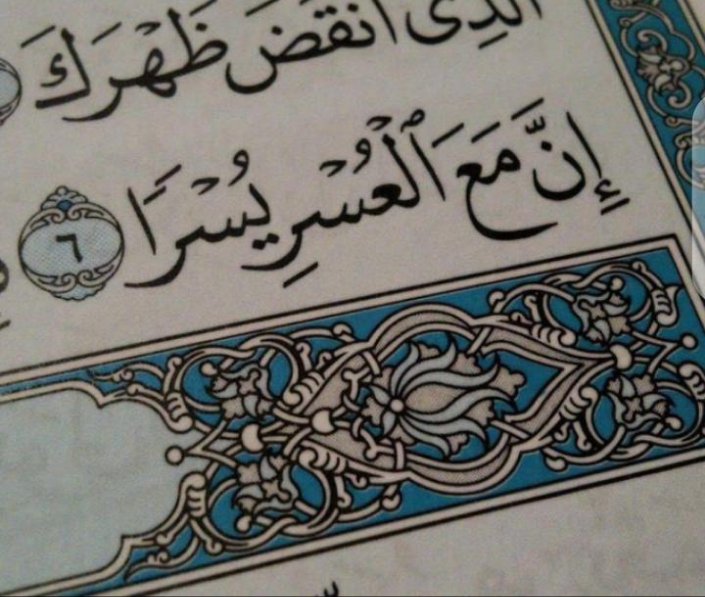 ٱلَّذِىٓ أَنقَضَ ظَهْرَكَ
إِنَّ مَعَ ٱلْعُسْرِ يُسْرًا ٦